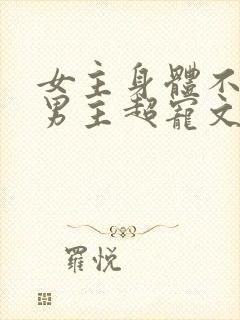 女主身體不
男主超寵文
羅悅